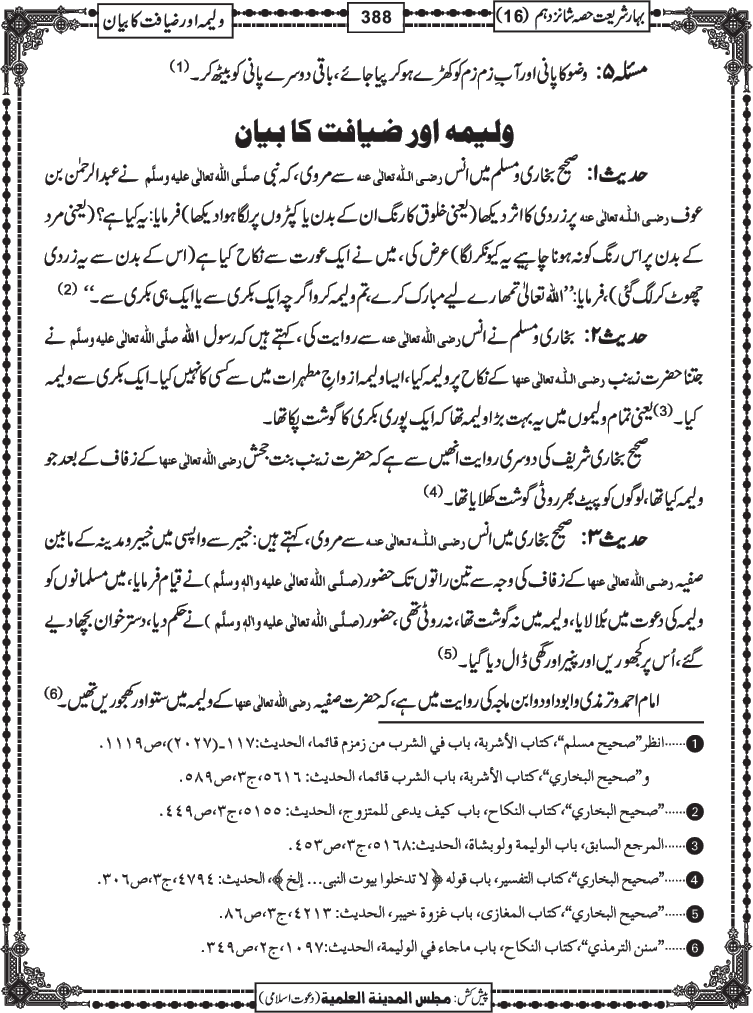 بہار شریعت حصہ شانزدہم (16)
388
ولیمہ اور ضیافت کا بیان
مسئلہ ۵: وضو کا پانی اور آب زم زم کو کھڑے ہو کر پیا جائے، باقی دوسرے پانی کو بیٹھ کر۔ (1)
ولیمہ اور ضیافت کا بیان
حدیث ۱: صحیح بخاری و مسلم میں انس رضی اللہ تعالٰی عنہ سے مروی، کہ نبی صلَّی اللہ تعالٰی علیہ وسلَّم نے عبدالرحمٰن بن
عوف رضی اللہ تعالٰی عنہ پر زردی کا اثر دیکھا (یعنی خلوق کا رنگ ان کے بدن یا کپڑوں پر لگا ہوا دیکھا) فرمایا: یہ کیا ہے؟ (یعنی مرد
کے بدن پر اس رنگ کو نہ ہونا چاہیے یہ کیونکر لگا) عرض کی، میں نے ایک عورت سے نکاح کیا ہے (اس کے بدن سے یہ زردی
چھوٹ کر لگ گئی)، فرمایا: ’’اللہ تعالیٰ تمھارے لیے مبارک کرے، تم ولیمہ کرو اگرچہ ایک بکری سے یا ایک ہی بکری سے۔‘‘ (2)
حدیث ۲: بخاری و مسلم نے انس رضی اللہ تعالٰی عنہ سے روایت کی، کہتے ہیں کہ رسول اللہ صلَّی اللہ تعالٰی علیہ وسلَّم نے
جتنا حضرت زینب رضی اللہ تعالٰی عنہا کے نکاح پر ولیمہ کیا، ایسا ولیمہ ازواجِ مطہرات میں سے کسی کا نہیں کیا۔ ایک بکری سے ولیمہ
کیا۔ (3) یعنی تمام ولیموں میں یہ بہت بڑا ولیمہ تھا کہ ایک پوری بکری کا گوشت پکا تھا۔
صحیح بخاری شریف کی دوسری روایت انھیں سے ہے کہ حضرت زینب بنت جحش رضی اللہ تعالٰی عنہا کے زفاف کے بعد جو
ولیمہ کیا تھا، لوگوں کو پیٹ بھر روٹی گوشت کھلایا تھا۔ (4)
حدیث ۳: صحیح بخاری میں انس رضی اللہ تعالٰی عنہ سے مروی، کہتے ہیں: خیبر سے واپسی میں خیبر و مدینہ کے مابین
صفیہ رضی اللہ تعالٰی عنہا کے زفاف کی وجہ سے تین راتوں تک حضور (صلَّی اللہ تعالٰی علیہ والہٖ وسلَّم) نے قیام فرمایا، میں مسلمانوں کو
ولیمہ کی دعوت میں بُلا لایا، ولیمہ میں نہ گوشت تھا، نہ روٹی تھی، حضور (صلَّی اللہ تعالٰی علیہ والہٖ وسلَّم) نے حکم دیا، دسترخوان بچھا دیے
گئے، اُس پر کھجوریں اور پنیر اور گھی ڈال دیا گیا۔ (5)
امام احمد و ترمذی و ابو داود و ابن ماجہ کی روایت میں ہے، کہ حضرت صفیہ رضی اللہ تعالٰی عنہا کے ولیمہ میں ستو اور کھجوریں تھیں۔ (6)
1 ......انظر”صحیح مسلم“، کتاب الأشربة، باب في الشرب من زمزم قائما، الحدیث: ١١٧ـ(٢٠٢٧)، ص١١١٩.
و”صحیح البخاري“، کتاب الأشربة، باب الشرب قائما، الحدیث: ٥٦١٦، ج٣، ص٥٨٩.
2 ......”صحیح البخاري“، کتاب النکاح، باب کیف یدعی للمتزوج، الحدیث: ٥١٥٥، ج٣، ص٤٤٩.
3 ......المرجع السابق، باب الولیمة ولو بشاة، الحدیث: ٥١٦٨، ج٣، ص٤٥٣.
4 ......”صحیح البخاري“، کتاب التفسیر، باب قوله ﴿لا تدخلوا بیوت النبی... إلخ﴾، الحدیث: ٤٧٩٤، ج٣، ص٣٠٦.
5 ......”صحیح البخاري“، کتاب المغازی، باب غزوة خیبر، الحدیث: ٤٢١٣، ج٣، ص٨٦.
6 ......”سنن الترمذي“، کتاب النکاح، باب ماجاء في الولیمة، الحدیث: ١٠٩٧، ج٢، ص٣٤٩.
پیش کش: مجلس المدینۃ العلمیۃ (دعوت اسلامی)